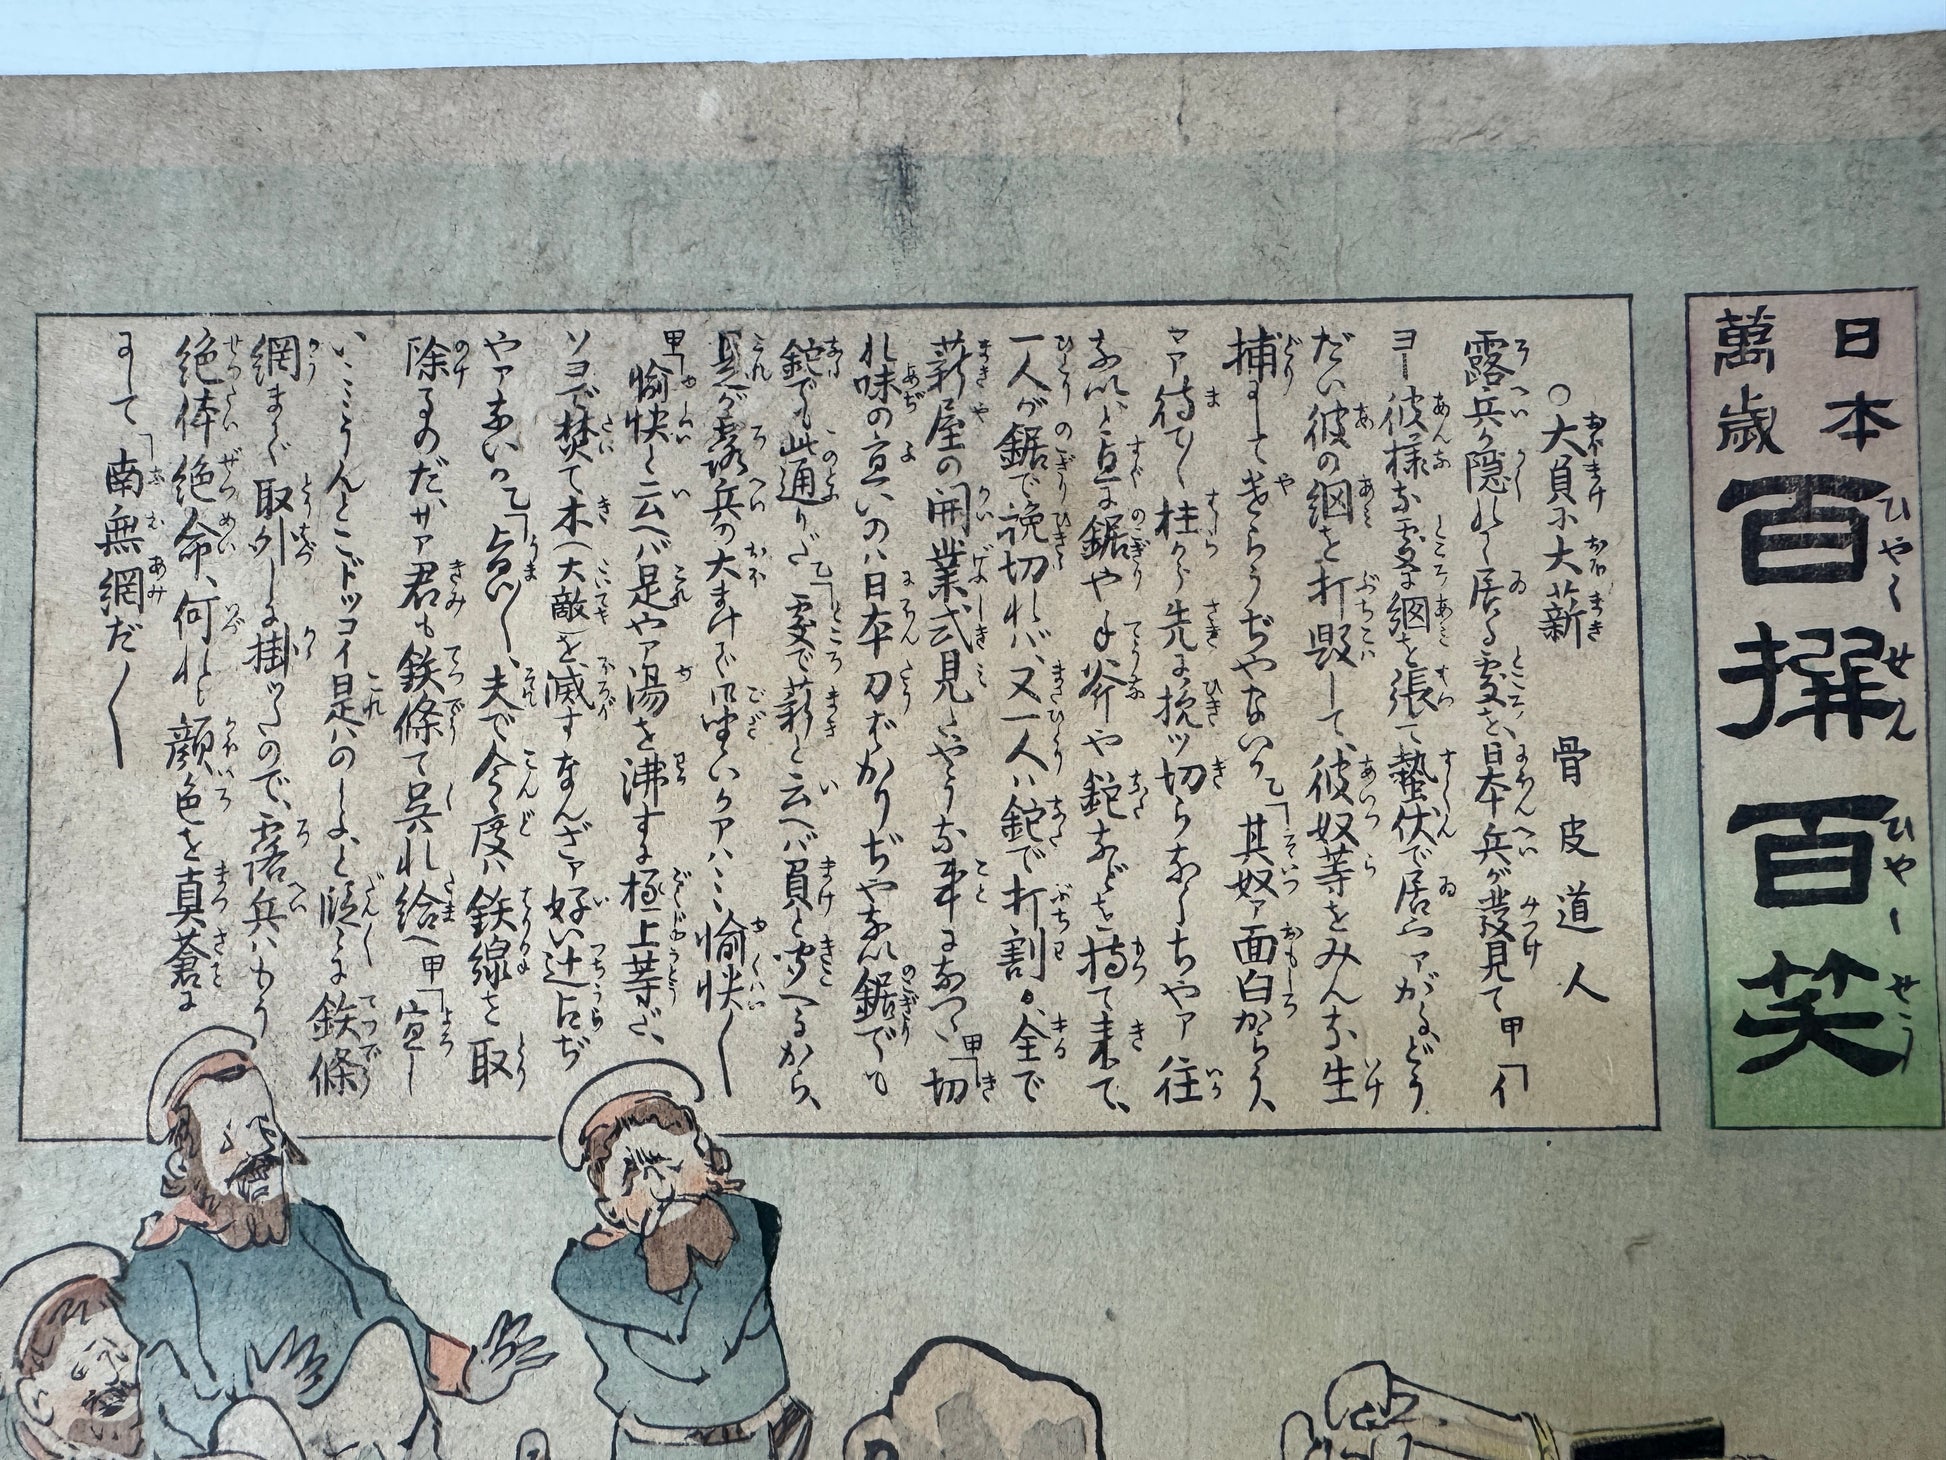 日本萬歳 百撰百笑
○大負に大薪 骨皮道人
露兵が隠れて居る処を、日本兵が發見て 甲「イ
ヨー彼様な処に網を張て蟄伏で居やァがる、どう
だい彼の網を打毀して、彼奴等をみんな生
捕にしてきやらうぢやないか 乙「其奴ァ面白からう、
マア待て〱柱から先に挽ッ切らなくちやァ往
ないと直に鋸や手斧や鉈などを持て来て、
一人が鋸で挽切れバ、又一人ハ鉈で打割る、全で
薪屋の開業式見たやうな事になつた、甲「切
れ味の宜いのハ日本刀ばかりぢやない鋸でも
鉈でも此通りだ 乙「処で薪と云へバ負と聞へるから、
是が露兵の大まけで御坐いかアハヽヽ愉快〱
甲「愉快と云へバ是やァ湯を沸すに極上等だ、
ソヨで焚て木(大敵)を滅すなんざァ好い辻占ぢ
やァないか 乙「旨い〱、夫で今度ハ鉄線を取
除るのだ、サァ君も鉄條て呉れ給へ 甲「宜し
い、ヽヽうんとこドッコイ是ハのしよ、と段々に鉄條
網まで取外しに掛ッたので、露兵ハもう
絶体絶命、何れも顔色を真蒼に
にして「南無網だ〱〱